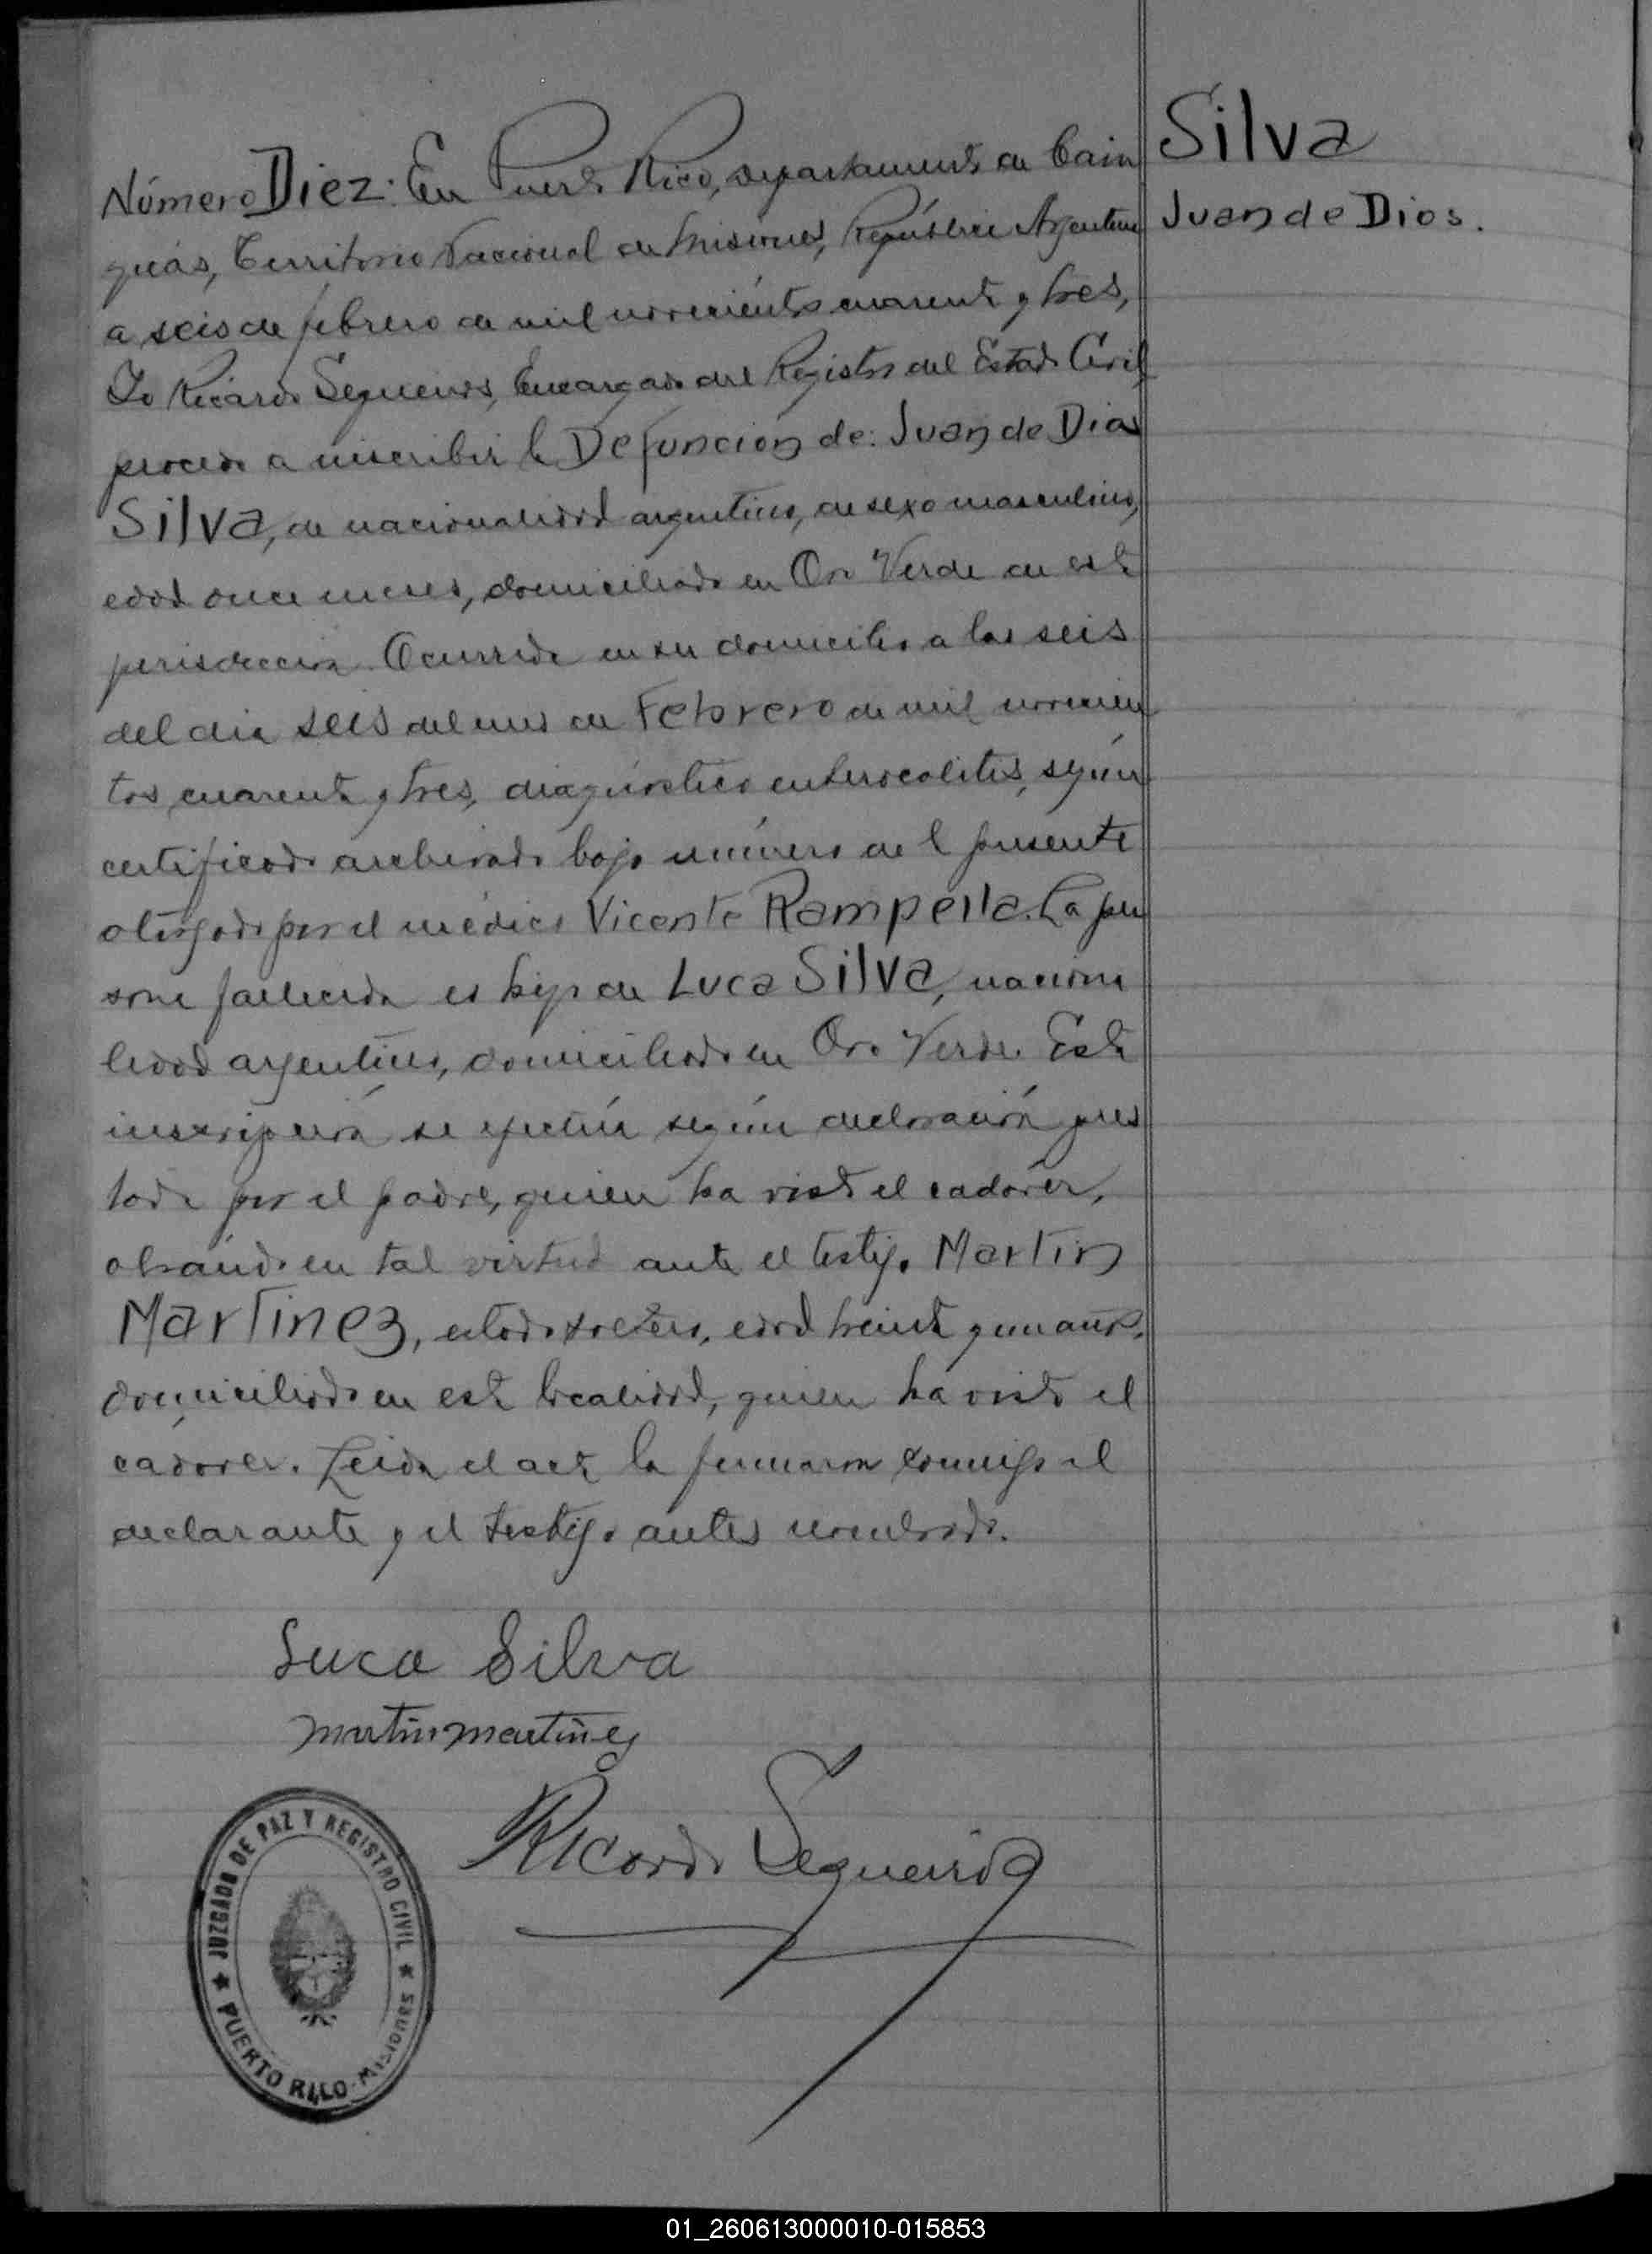 Silva
Juan de Dios.
Número Diez: En Puerto Rico, departamento de Cain
guás, Territorio Nacional de Misiones, República Argentina
a seis de febrero de mil novecientos cuarenta y tres,
Yo Ricardo Sequeiros, Encargado del Registro del Estado Civil,
procedo a inscribir la Defunción de: Juan de Dios
Silva, de nacionalidad argentino, de sexo masculino,
edad once meses, domiciliado en Oro Verde de esta
jurisdicción. Ocurrida en su domicilio a las seis
del dia seis del mes de Febrero de mil novecien
tos cuarenta y tres, diagnóstico enterocolitis, según
certificado archivado bajo número de la presente
otorgado por el médico Vicente Rampella. La per
sona fallecida es hijo de Luca Silva, naciona
lidad argentino, domiciliado en Oro Verde. Esta
inscripción se efectúa según declaración pres
tada por el padre, quien ha visto el cadáver,
obrando en tal virtud ante el testigo Martin
Martinez, estado soltero, edad treinta y un años,
domiciliado en esta localidad, quien ha visto el
cádaver. Leida el acta la firmaron conmigo el
declarante y el testigo antes nombrado.
Luca Silva
Martin Martinez
Ricardo Sequeiros
JUZGADO DE PAZ Y REGISTRO CIVIL
PUERTO RICO - MISIONES
01_260613000010-015853